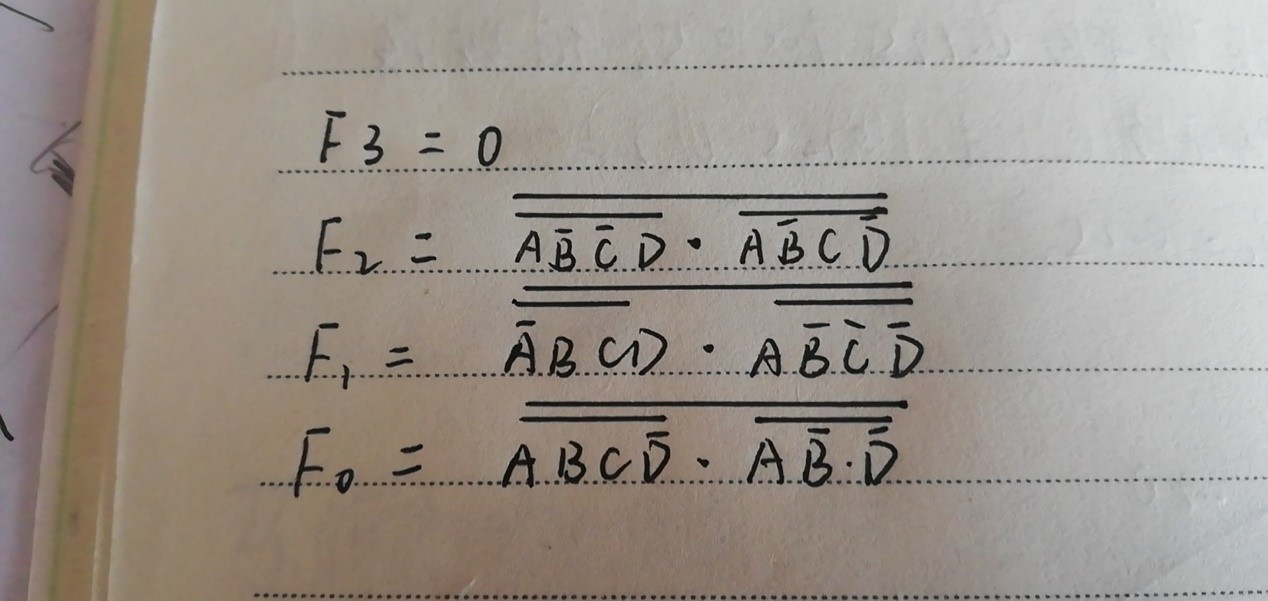 F3 = 0
F₂ = \overline{\overline{A\bar{B}\bar{C}D} · \overline{A\bar{B}C\bar{D}}}
F₁ = \overline{\overline{\bar{A}BCD} · \overline{A\bar{B}\bar{C}\bar{D}}}
F₀ = \overline{\overline{ABC\bar{D}} · \overline{A\bar{B}·\bar{D}}}